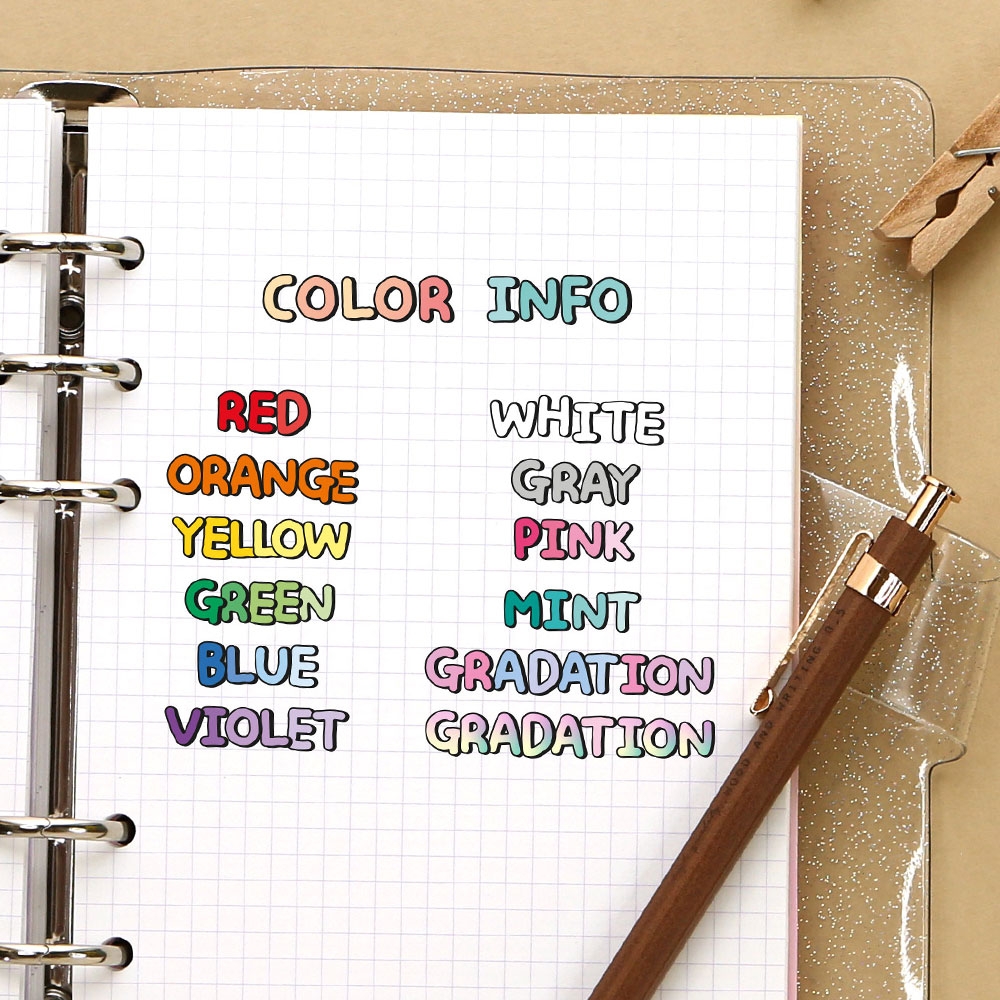 COLOR INFO
RED
ORANGE
YELLOW
GREEN
BLUE
VIOLET
WHITE
GRAY
PINK
MINT
GRADATION
GRADATION
WOOD AND WRITING 0.5